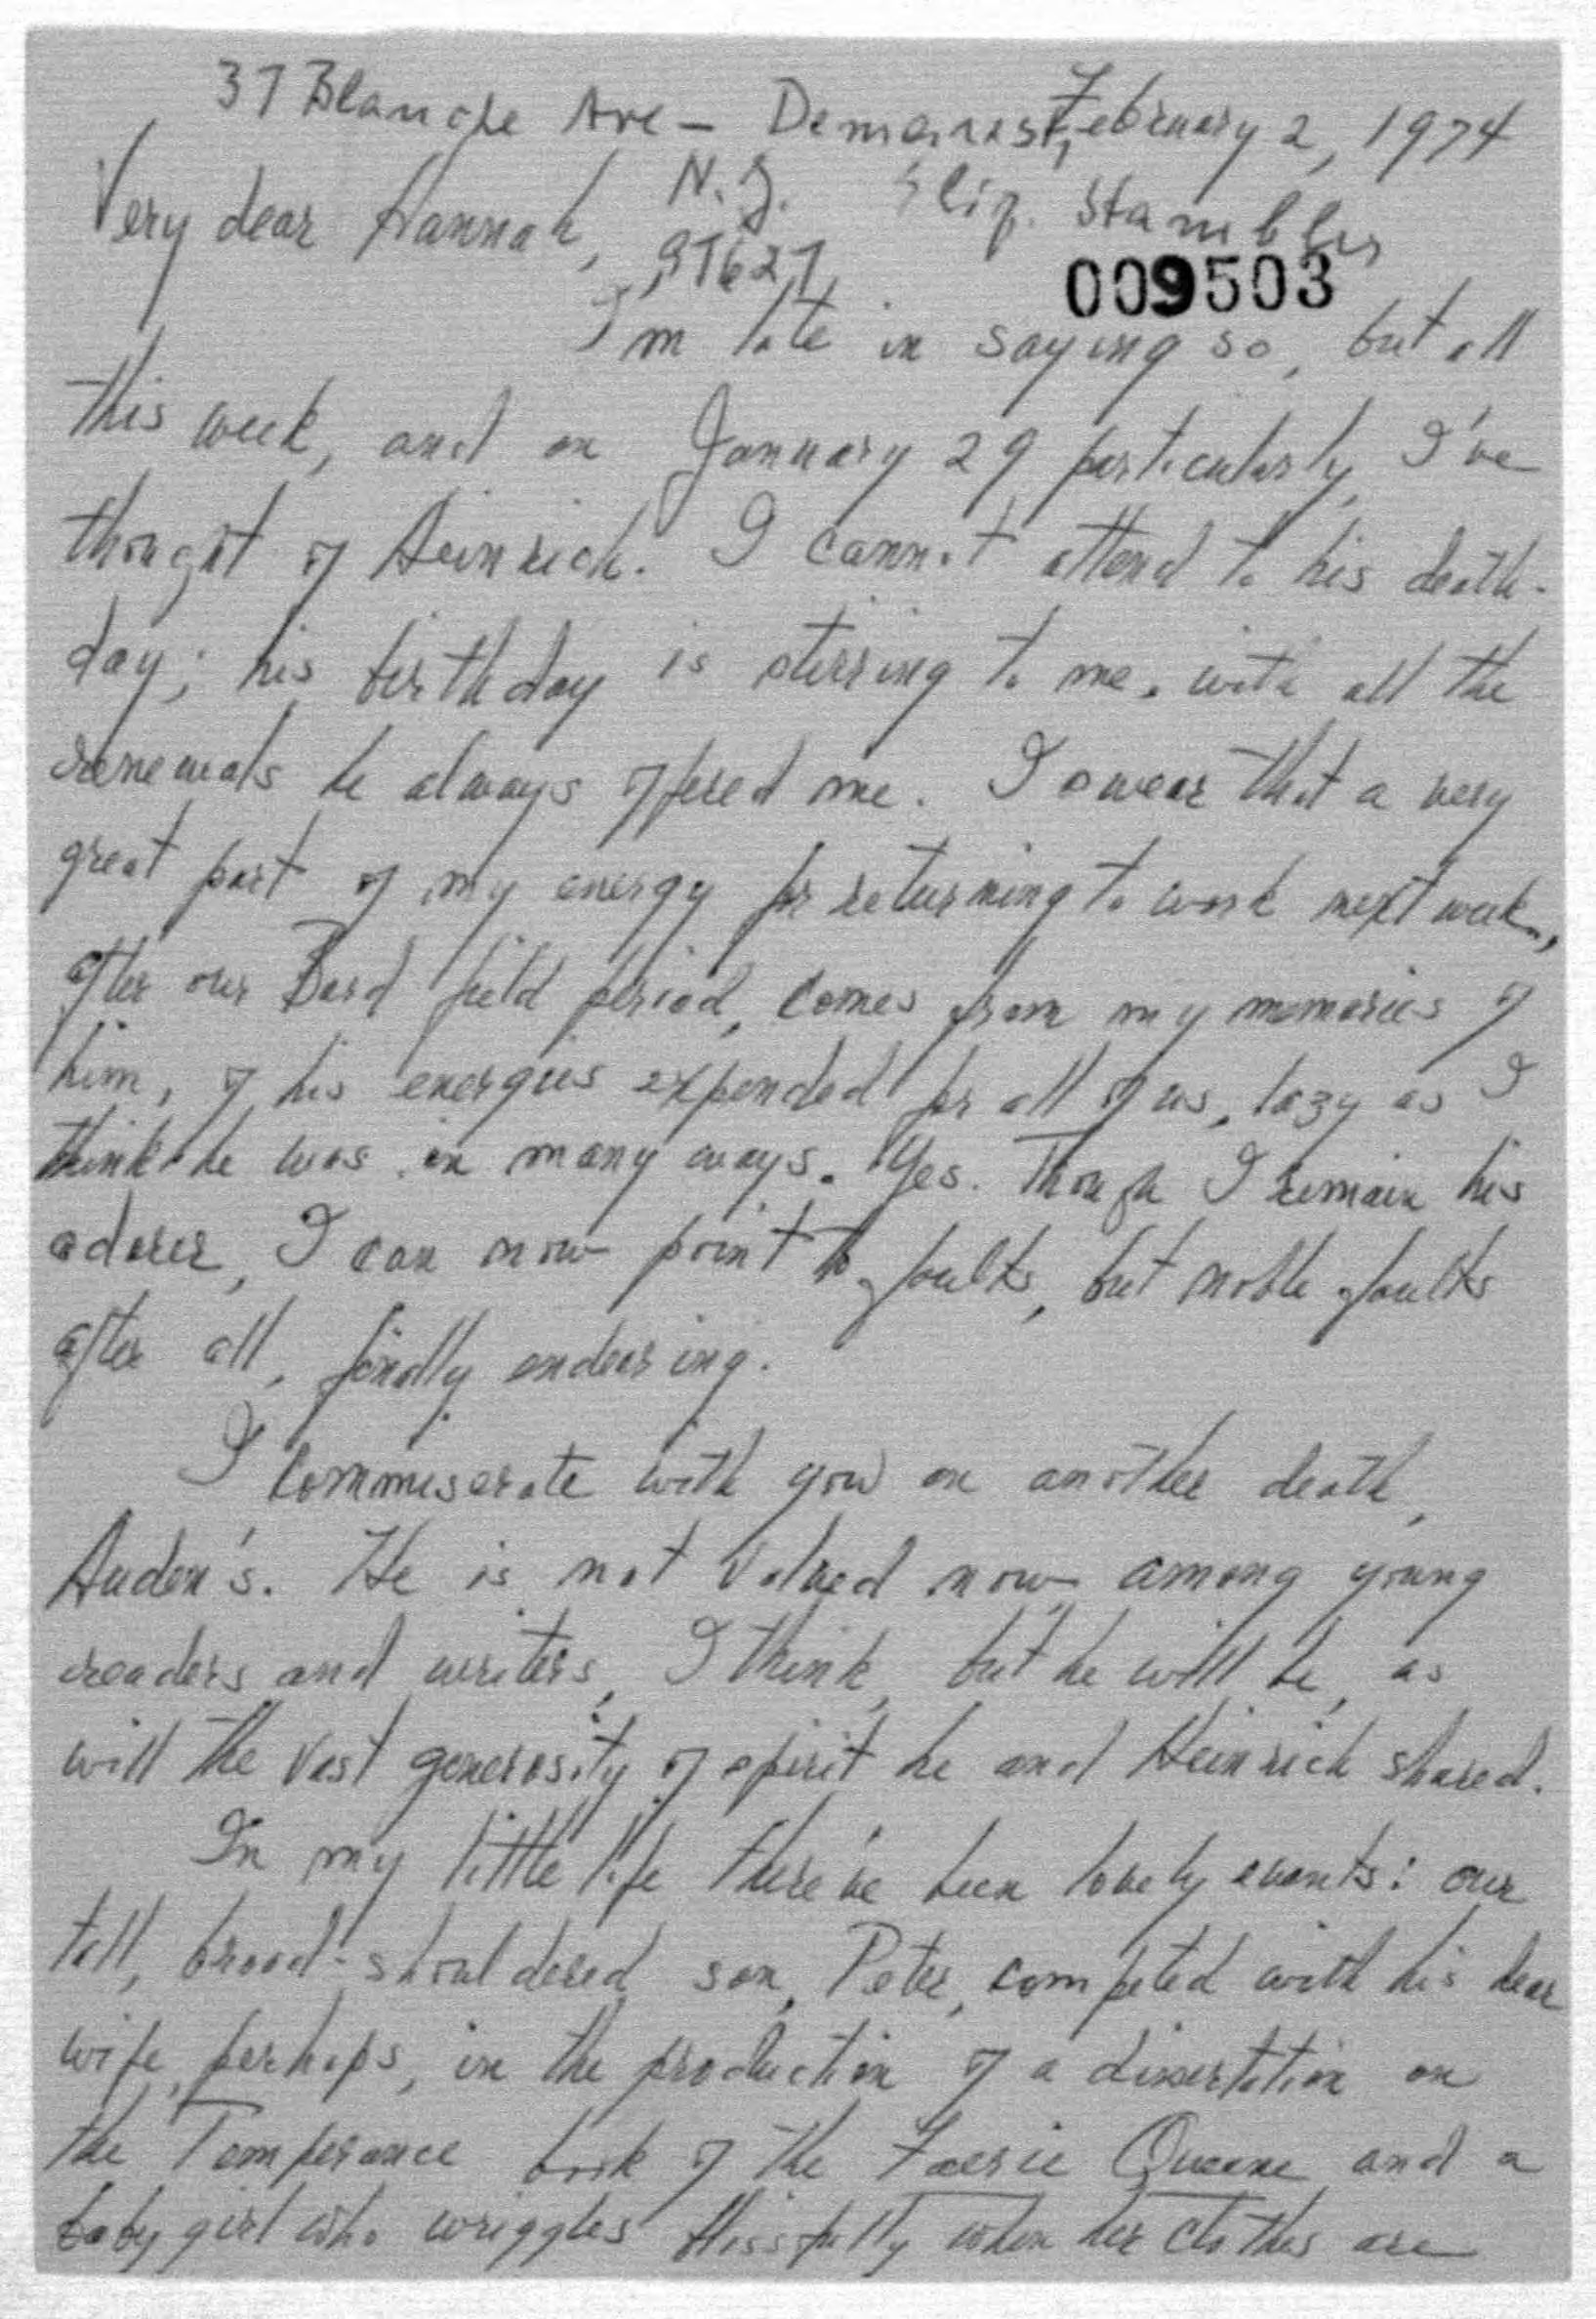 37 Blanche Ave - Demarest, February 2, 1974
N.J. Eliz. Stambler
Very dear Hannah, 07627
009503
I'm late in saying so, but all
this week, and on January 29 particularly, I've
thought of Heinrich. I cannot attend to his death-
day; his birthday is stirring to me, with all the
renewals he always offered me. I swear that a very
great part of my energy for returning to work next week,
after our Bard field period, comes from my memories of
him, of his energies expended for all of us, lazy as I
think he was in many ways. Yes. Though I remain his
adorer, I can now point to faults, but noble faults
after all, finally endearing.
I commiserate with you on another death,
Auden's. He is not valued now among young
readers and writers, I think, but he will be, as
will the vast generosity of spirit he and Heinrich shared.
In my little life there've been lovely events: our
tall, broad-shouldered son, Peter, competed with his dear
wife, perhaps, in the production of a dissertation on
the Temperance book of the Faerie Queene and a
baby girl who wriggles blissfully when her clothes are